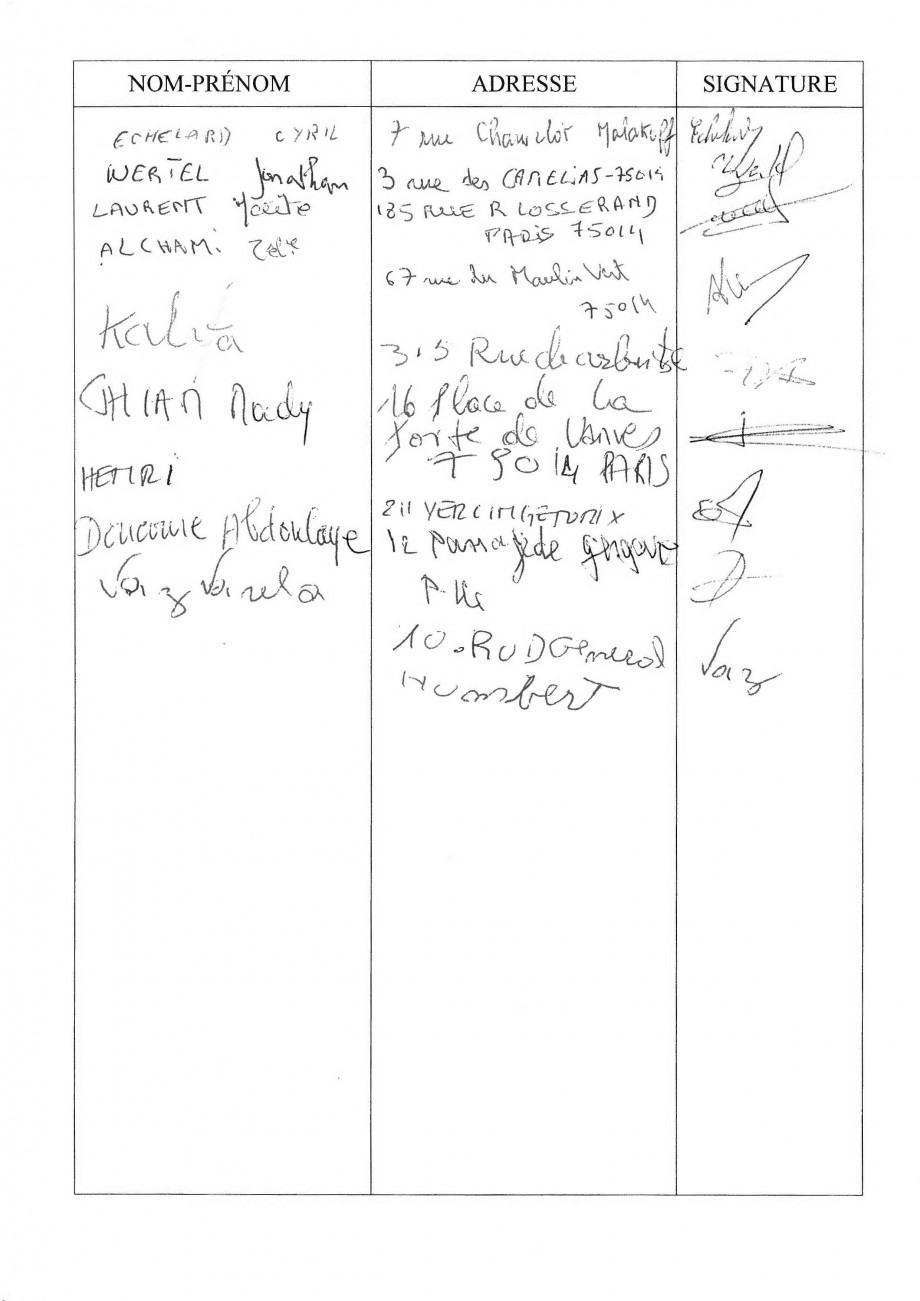 NOM-PRÉNOM ADRESSE SIGNATURE
ECHELARD CYRIL 7 rue Malakoff
WERTEL Jonathan 3 rue des CAMELIAS-75014
LAURENT 185 RUE R LOSSERAND
PARIS 75014
ALCHAMI
67 rue du Moulin Vert
75014
Kalita
Rue de
CHIAN Nady 16 Place de La
Porte de Vanves
75014 PARIS
HENRI
211 VERCINGETORIX
Doucoure Abdoulaye 12 Passage de
Vaz Varela
10. RUD General
Humbert
Vaz